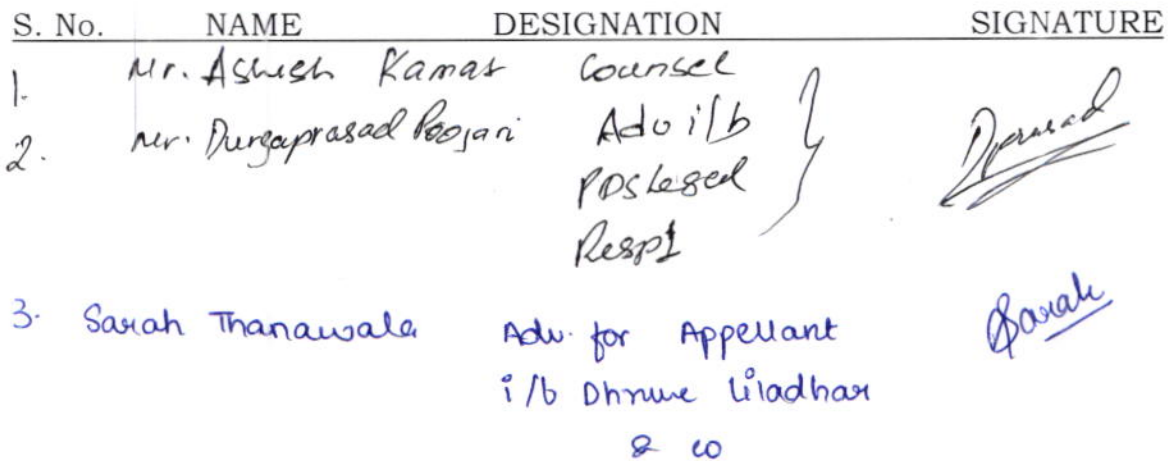 S. No. NAME DESIGNATION SIGNATURE
1. Mr. Ashish Kamat Counsel
2. Mr. Durgaprasad Poojari Adv i/b
PDS Legal
Resp 1
Dprasad
3. Sarah Thanawala Adv. for Appellant
Sarah
i/b Dhruve Liladhar
& co